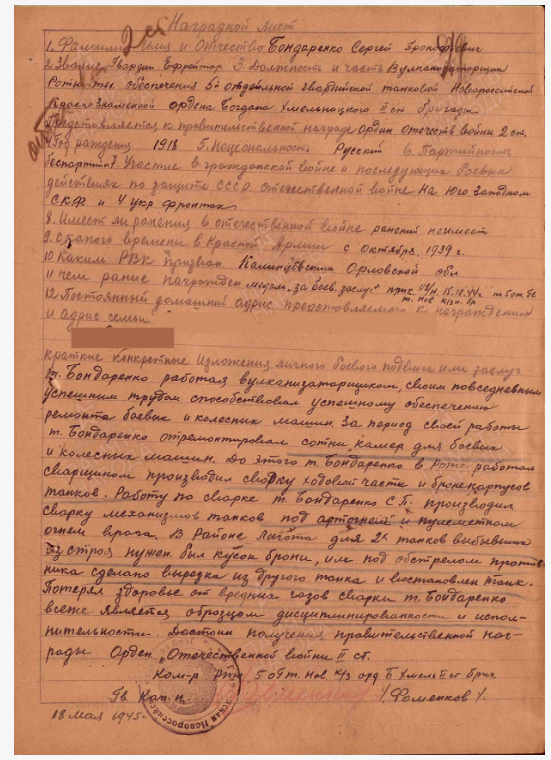 Наградной лист
1. Фамилия Имя и Отчество Бондаренко Сергей Прокофьевич
2. Звание Гвардии Ефрейтор 3. Должность и часть Вулканизаторщик
Роты тех обеспечения 5й отдельной гвардийской танковой Новороссийской
Краснознаменной ордена Богдана Хмельницкого II ст бригады.
Представляется к правительственной награде Орден Отечеств войны 2 ст.
Год рождения 1918 5. Нацеональность Русский 6. Партийность
беспартий 7. Участие в гражданской войне и последующих боевых
действиях по защите СССР отечественной войне На юго Западном
СКФ и 4 укр фронтах.
8. Имеет ли ранения в отечественной войне ранений неимеет
9. С какого времени в Красной Армии с октября 1939 г.
10 Каким РВК призван Орловской обл
11 чем рание награжден медаль "за боев. заслуг" прик. 15.10.44г.
12. Постоянный домашний адрис представляемого к награждению
и адрис семьи
краткие конкретные изложения личного боевого подвига или заслуг
т. Бондаренко работая вулканизаторщиком, своим повседневным
успешным трудом способствовал успешному обеспечению
ремонта боевых и колесних машин. За период своей работы
т. Бондаренко отремонтировал сотни камер для боевых
и колесных машин. До этого т. Бондаренко в роте работал
сварщиком производил сварку ходовой части и бронекорпусов
танков. Работу по сварке т. Бондаренко С.П. производил
сварку механизмов танков под артогнем и пулеметном
огнем врага. В Районе для 2х танков выбывших
из строя нужен был кусок брони, им под обстрелом против-
ника сделано вырезка из другого танка и востановлен танк.
Потерял здоровье от вредных газов сварки т. Бондаренко
всеже является образцом дисциплинированности и испол-
нительности. Достоин получения правительственной наг-
рады Орден "Отечественной войны II ст.
Ком-р 5 от т. Нов. К/з орд Б. Хмель II ст бриг.
Гв. Кап-н /Фоменков/.
18 мая 1945г.